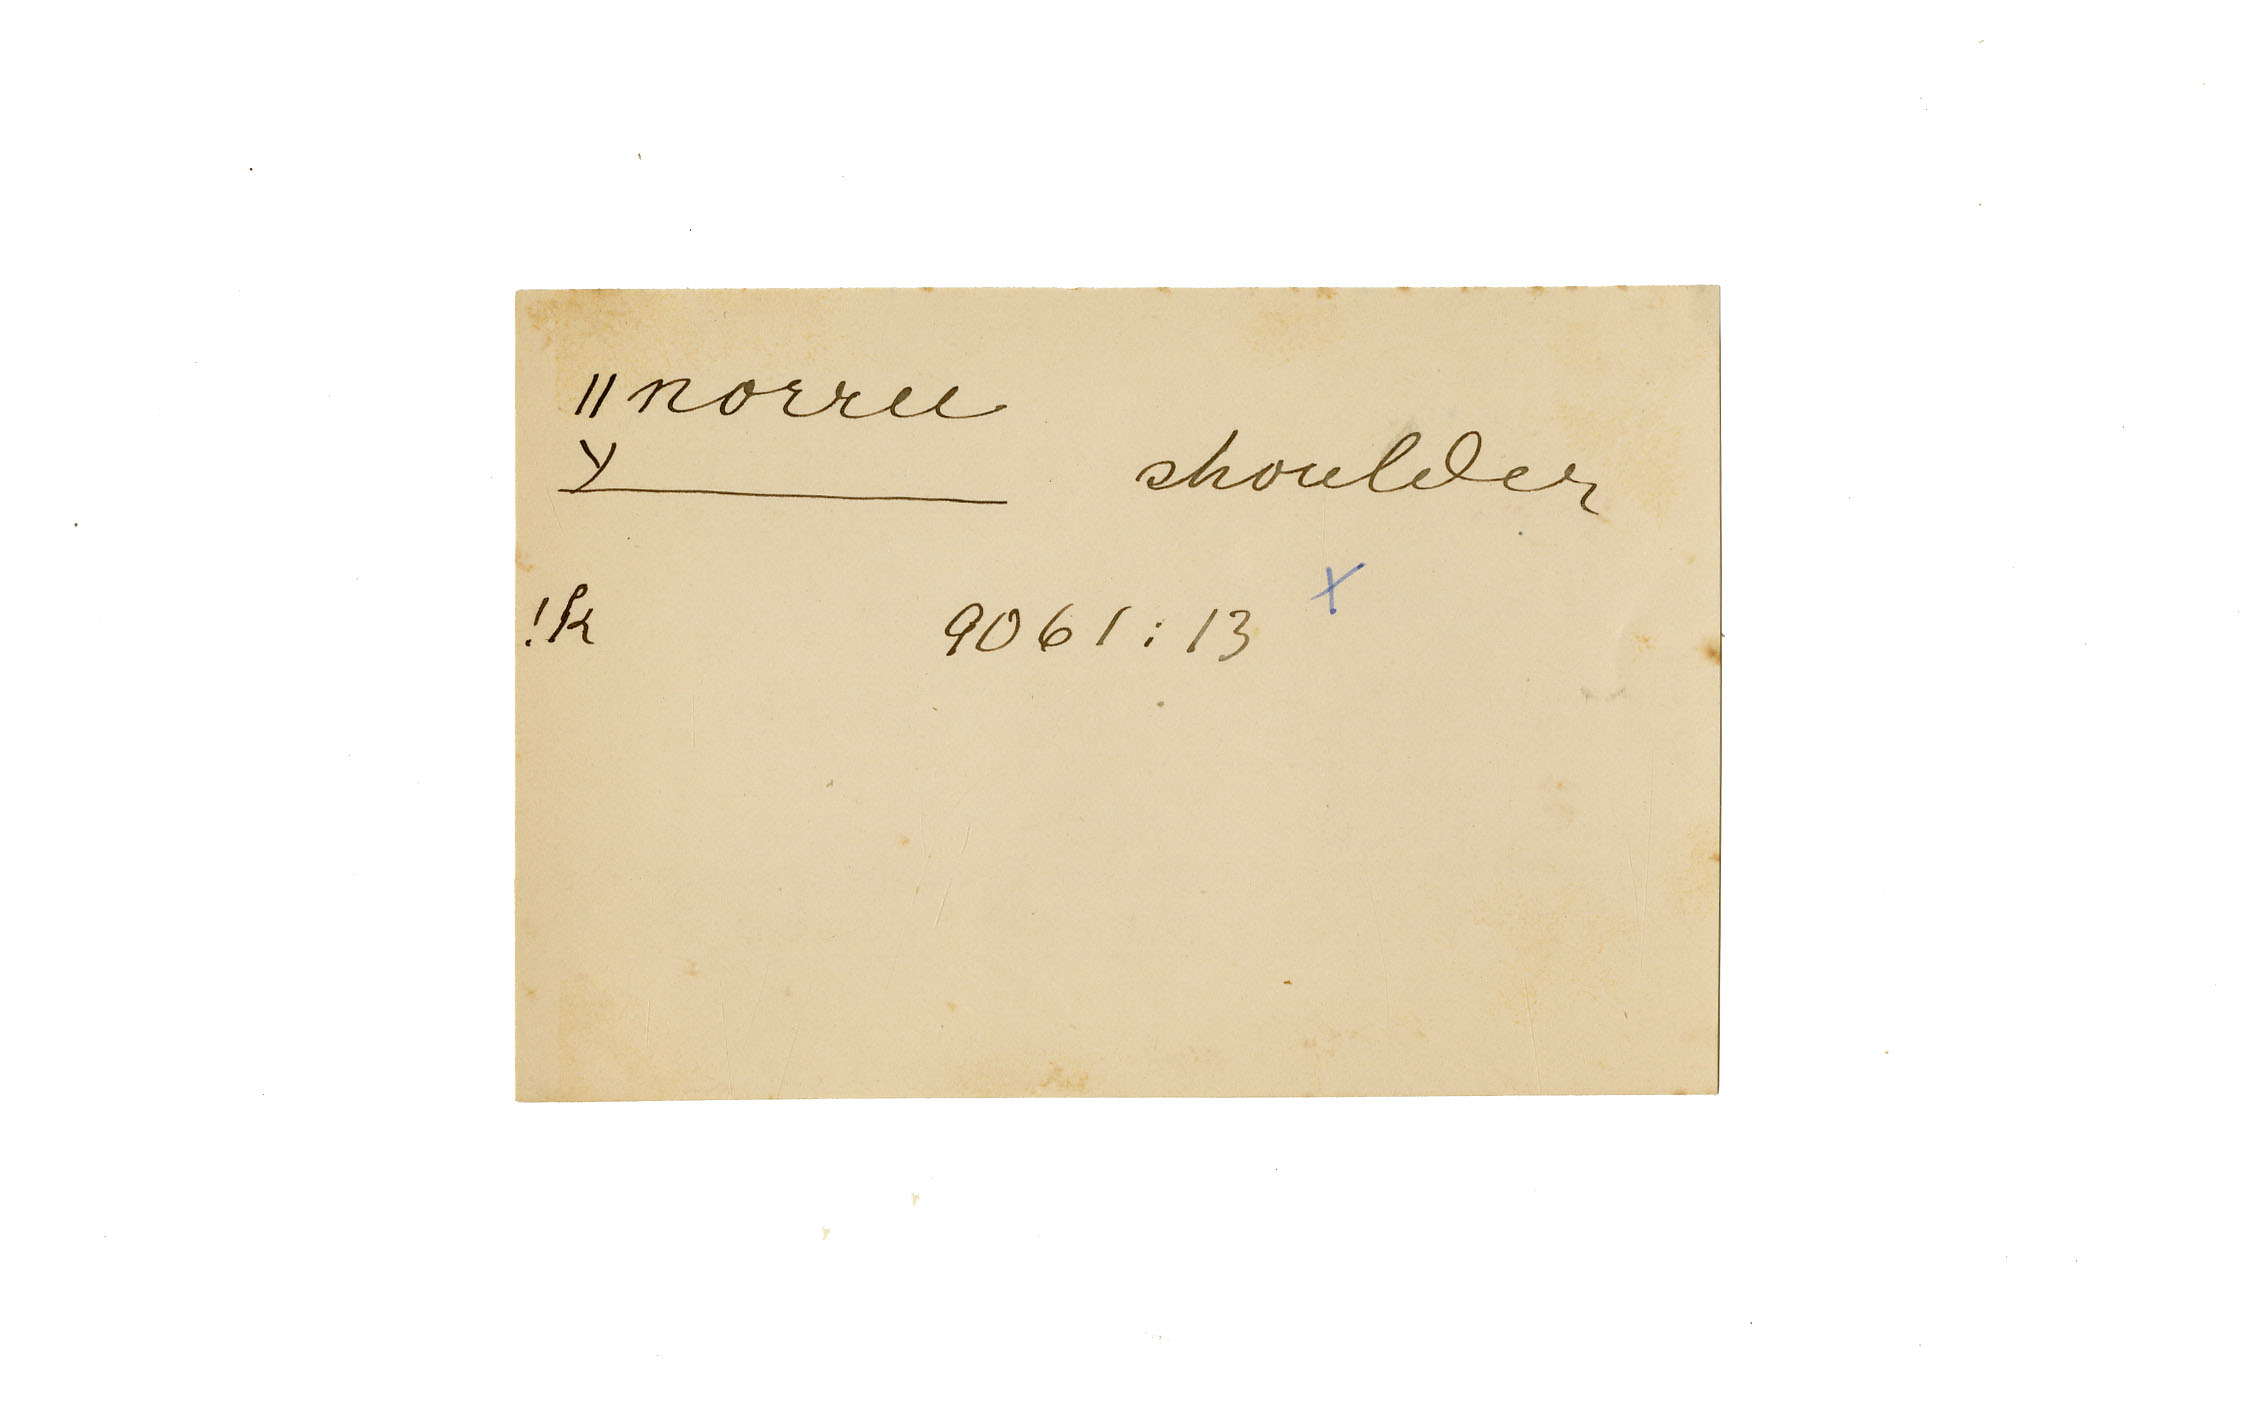 ǁnorru
Y
shoulder
!k 9061:13 X